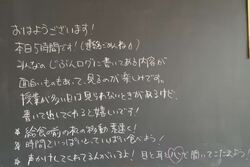 おはようございます!
本日5時間です!(連絡ごめんね)
みんなのじぶんログに書いてある内容が
面白いものもあって、見るのが楽しみです。
授業が多い日は見られないときがあるけど、
書いて出してくれると嬉しいです!
★給食の前の移動 素速く!
★時間いっぱいいっぱい食べよう!
★声かけしてくれてる人がいるよ! 目と耳と心で聞いてこたえよう